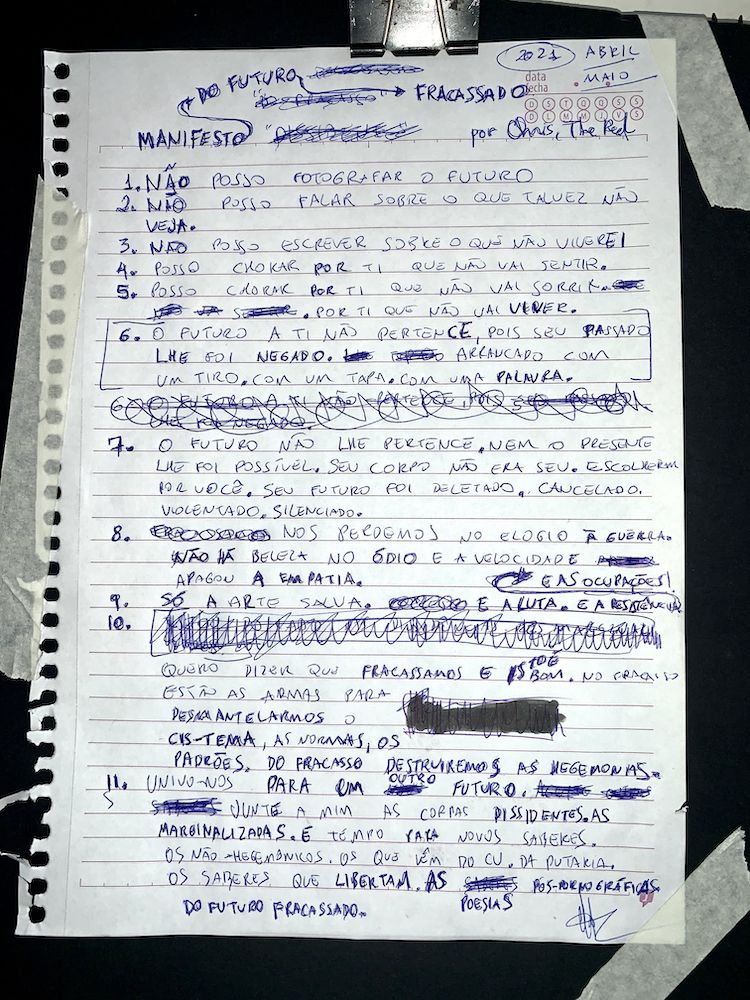 2021 ABRIL
MAIO
data
fecha
D S T Q Q S S
D L M M J V S
DO FUTURO
FRACASSADO
MANIFESTO
por Chris, The Red
1. NÃO POSSO FOTOGRAFAR O FUTURO
2. NÃO POSSO FALAR SOBRE O QUE TALVEZ NÃO
VEJA.
3. NÃO POSSO ESCREVER SOBRE O QUE NÃO VIVEREI
4. POSSO CHORAR POR TI QUE NÃO VAI SENTIR.
5. POSSO CHORAR POR TI QUE NÃO VAI SORRIR.
. POR TI QUE NÃO VAI VIVER.
6. O FUTURO A TI NÃO PERTENCE, POIS SEU PASSADO
LHE FOI NEGADO. ARRANCADO COM
UM TIRO. COM UM TAPA. COM UMA PALAVRA.
6. O FUTURO A TI NÃO PERTENCE, POIS SEU
LHE FOI NEGADO.
7. O FUTURO NÃO LHE PERTENCE. NEM O PRESENTE
LHE FOI POSSÍVEL. SEU CORPO NÃO ERA SEU. ESCOLHERAM
POR VOCÊ. SEU FUTURO FOI DELETADO. CANCELADO.
VIOLENTADO. SILENCIADO.
8. NOS PERDEMOS NO ELOGIO À GUERRA.
NÃO HÁ BELEZA NO ÓDIO E A VELOCIDADE
APAGOU A EMPATIA.
E AS OCUPAÇÕES!
9. SÓ A ARTE SALVA. E A LUTA. E A RESISTÊNCIA
10.
QUERO DIZER QUE FRACASSAMOS E ISTO É BOM. NO FRACASSO
ESTÃO AS ARMAS PARA
DESMANTELARMOS O
CIS-TEMA, AS NORMAS, OS
PADRÕES. DO FRACASSO DESTRUIREMOS AS HEGEMONIAS.
11. UNIVO-NOS PARA UM OUTRO FUTURO.
JUNTE A MIM AS CORPAS DISSIDENTES. AS
MARGINALIZADAS. É TEMPO PARA NOVOS SABERES.
OS NÃO-HEGEMÔNICOS. OS QUE VÊM DO CU. DA PUTARIA.
OS SABERES QUE LIBERTAM. AS POESIAS PÓS-PORNOGRÁFICAS.
DO FUTURO FRACASSADO.